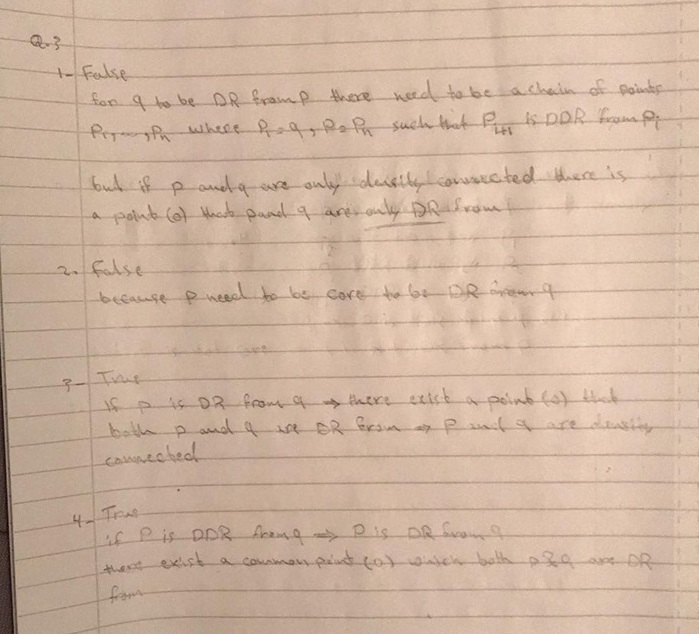 Q.3
1- False
for q to be DR from P there need to be a chain of points
P1,...,Pn where P1=q, P=Pn such that Pi+1 is DDR from Pi
but if p and q are only density connected there is
a point (o) that p and q are only DR from
2. False
because P need to be core to be DR from q
3- True
if P is DR from q → there exist a point (o) that
both p and q are DR from → P and q are density
connected
4- True
if P is DDR from q ⇒ P is DR from q
there exist a common point (o) which both p & q are DR
from